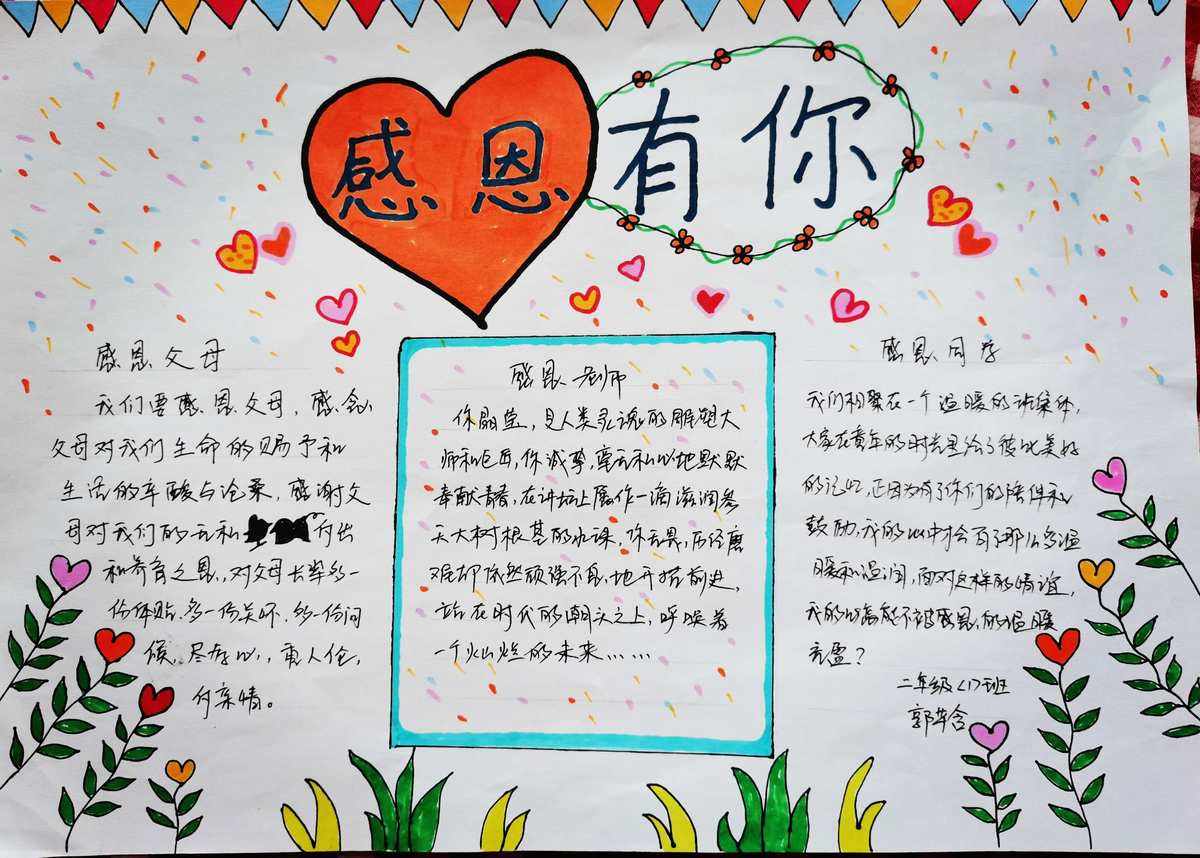 感恩有你
感恩父母
我们要感恩父母，感念
父母对我们生命的赐予和
生活的辛酸与沧桑，感谢父
母对我们的无私付出
和养育之恩，对父母长辈多一
份体贴、多一份关怀、多一份问
候，尽孝心，重人伦，
付亲情。
感恩老师
你晶莹，是人类灵魂的雕塑大
师和巨匠，你诚挚，毫无私心地默默
奉献青春，在讲坛上愿作一滴滋润参
天大树根基的水珠，你无畏，历经磨
难却依然顽强不息地开拓前进，
站在时代的潮头之上，呼唤着
一个灿烂的未来……
感恩同学
我们相聚在一个温暖的班集体，
大家在童年的时光里给了彼此美好
的记忆，正因为有了你们的陪伴和
鼓励，我的心中才会有了那么多温
暖和湿润，面对这样的情谊，
我的心怎能不被感恩的温暖
充盈？
二年级〈1〉班